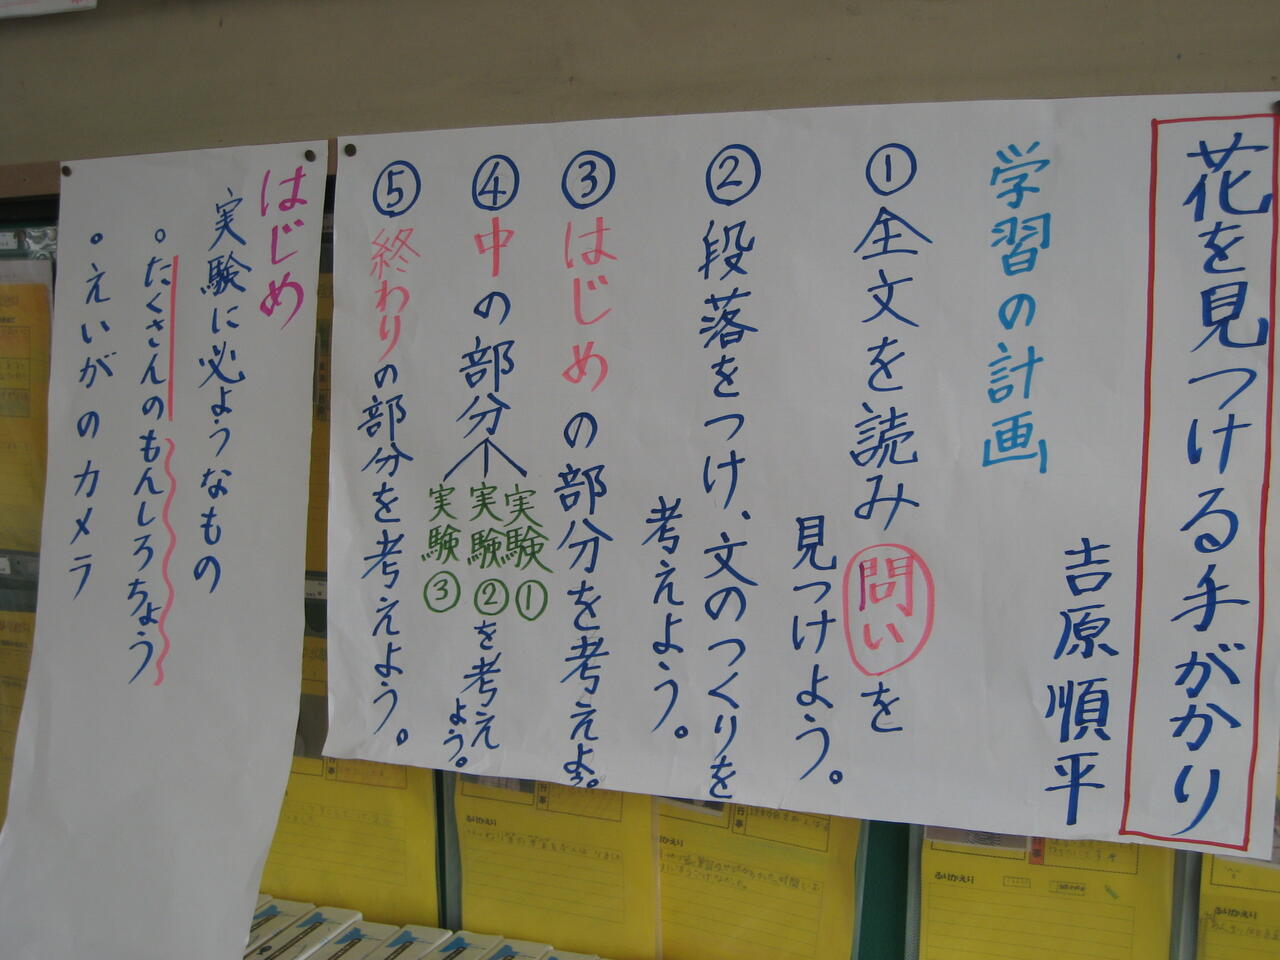 花を見つける手がかり
吉原順平
学習の計画
①全文を読み問いを
見つけよう。
②段落をつけ、文のつくりを
考えよう。
③はじめの部分を考えよう。
④中の部分
実験①
実験②を考え
よう。
実験③
⑤終わりの部分を考えよう。
はじめ
実験に必ようなもの
。たくさんのもんしろちょう
。えいがのカメラ
ふりかえり
ふりかえり
ふりかえり